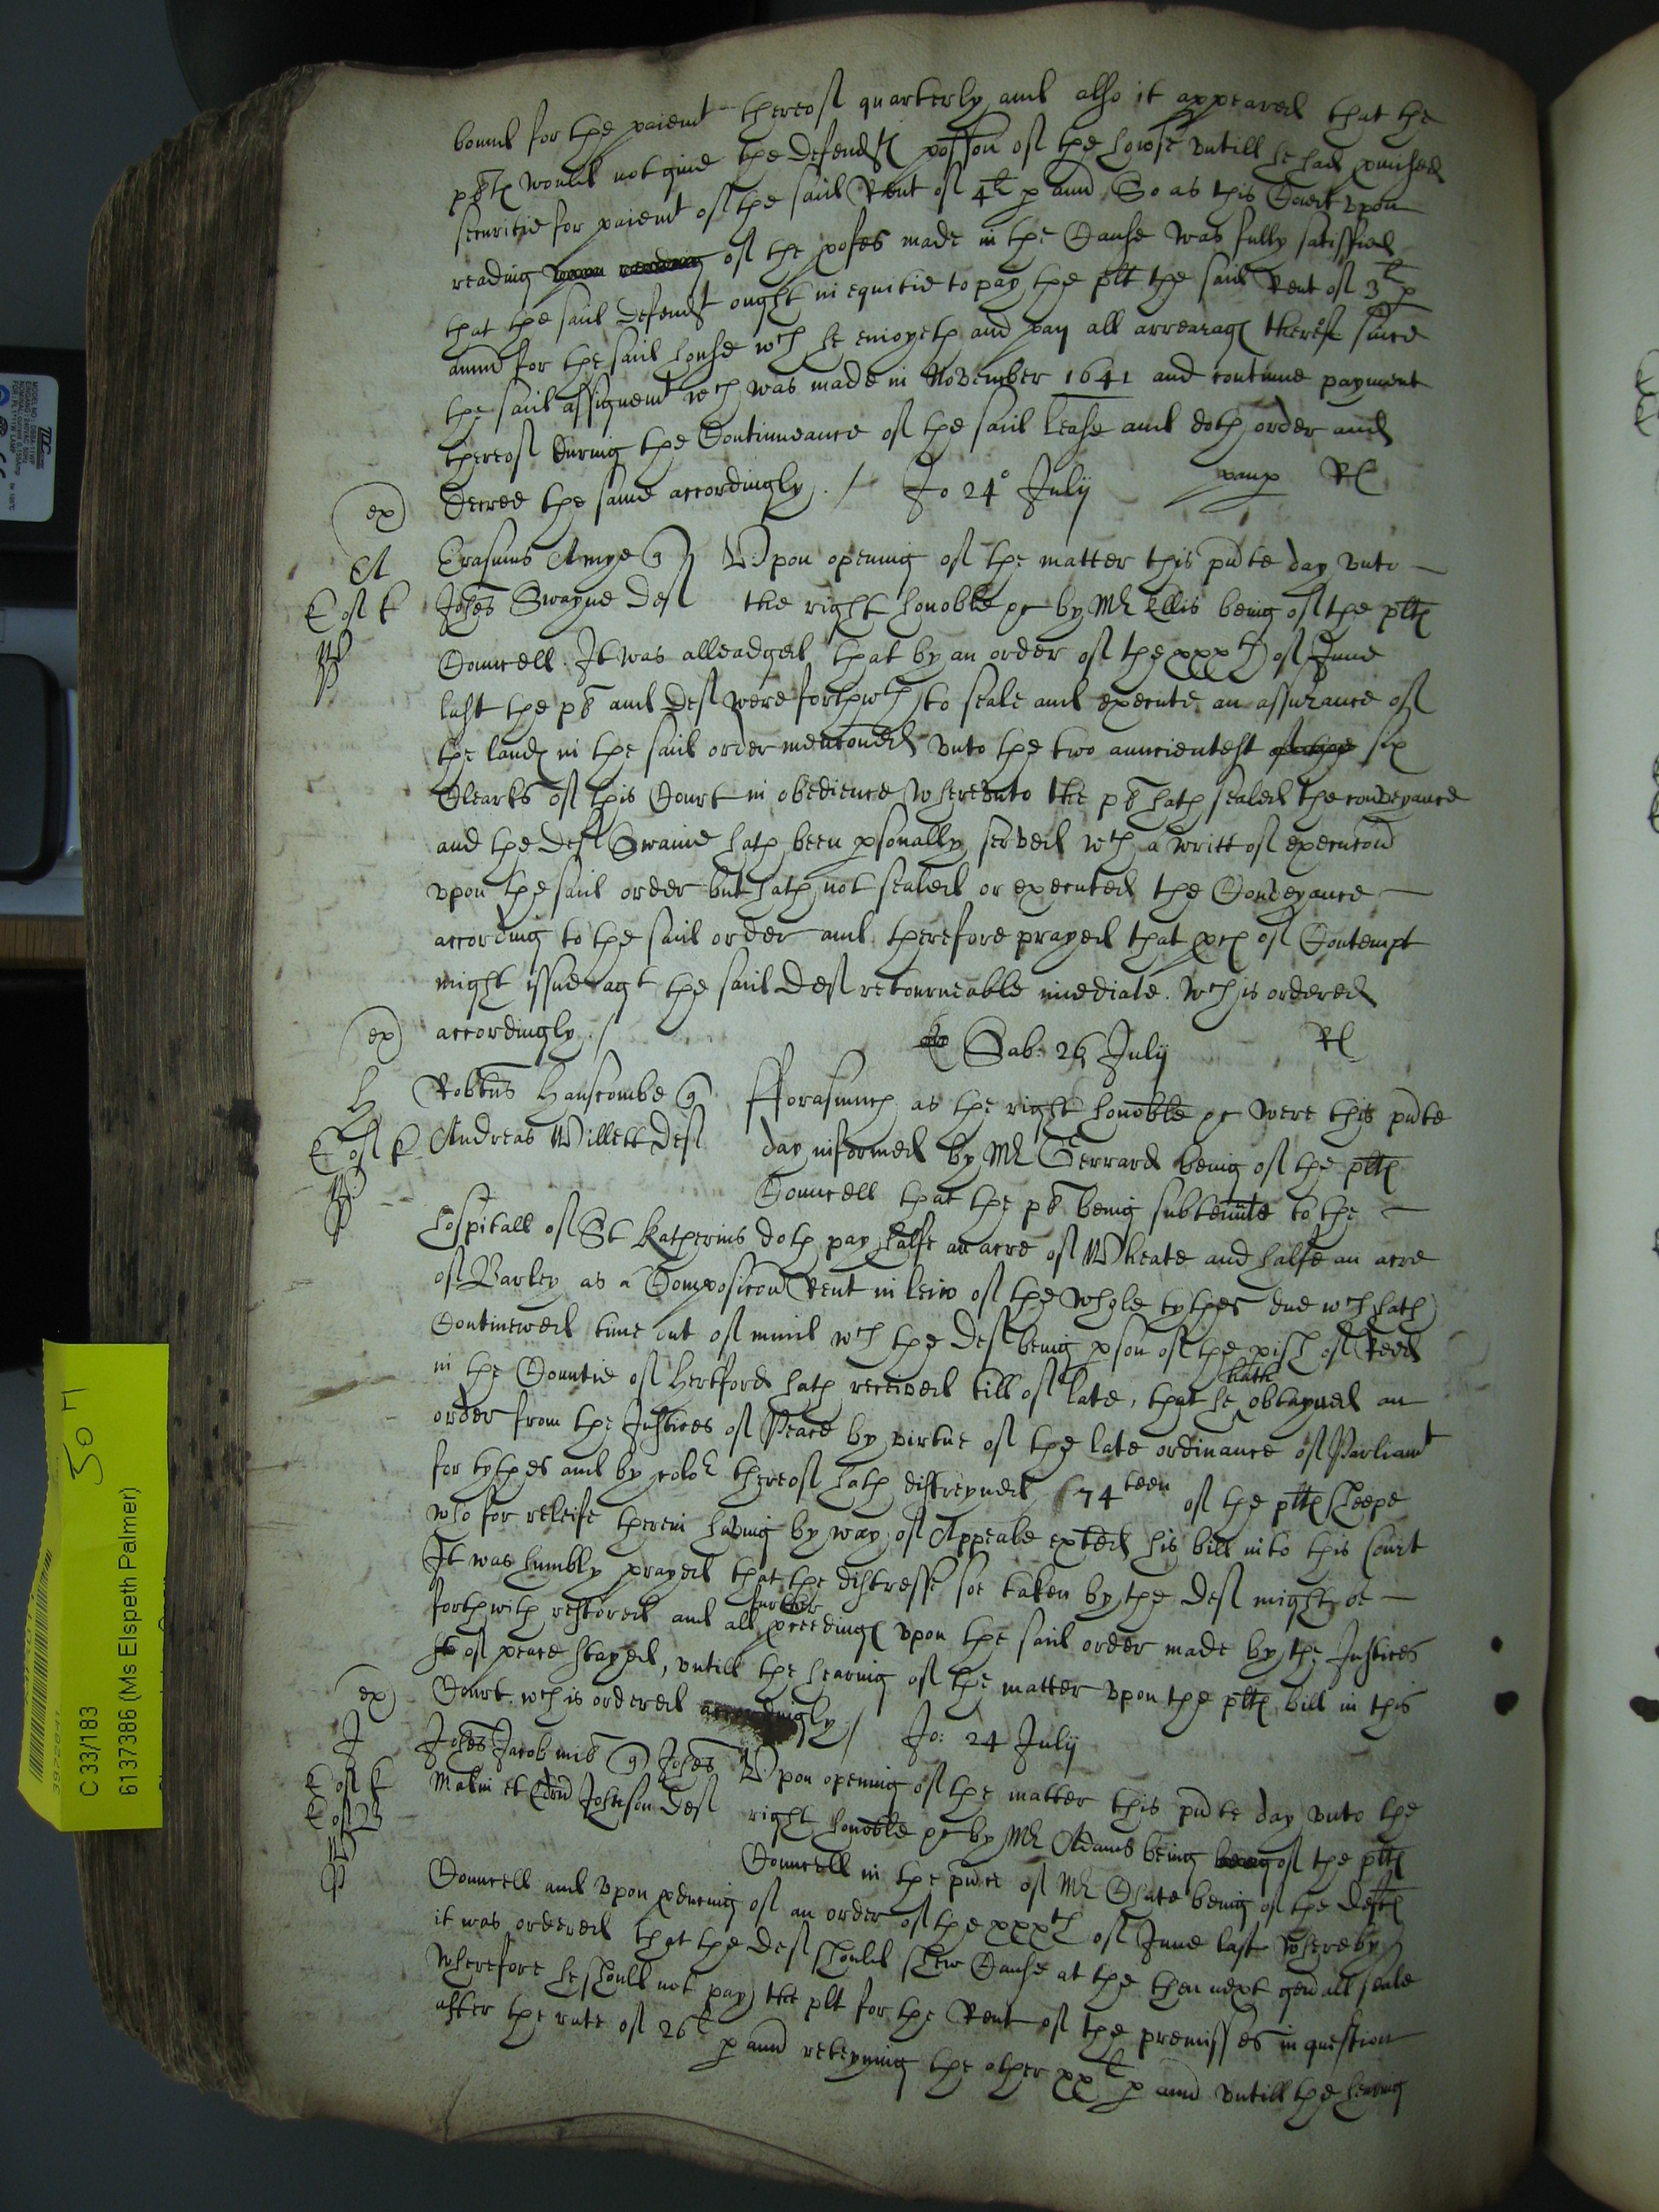 bound for the paiemt thereof quarterly and also it appeared that the
plts would not give the defendts possion of the howse untill he had pvided
securitie for paiemt of the said Rent of 4l p annu So as this Court upon
reading upon reading of the pofes made in the Cause was fully satisfied
that the said defendt ought in equitie to pay the plt the said Rent of 3l p
annu for the said house wch he enioyeth and pay all arrearages thereof since
the said assignemt wch was made in November 1641 and continue payment
thereof during the Continueance of the said lease and doth order and
Decree the same accordingly ./ Jo 24° July Rl
ex
A Erasmus Amye q Upon opening of the matter this pnte day unto
Johes Swayne def the right honoble &c by Mr Ellis being of the plts
Councell. It was alleadged that by an order of the xxxth of June
last the pl and def were forthwth to seale and execute an assurance of
the lands in the said order menconed unto the two auncientest of the six
Clearks of this Court in obedience whereunto the pl hath sealed the conveyance
and the def Swaine hath been psonally served wth a writt of execucon
upon the said order but hath not sealed or executed the Conveyance
according to the said order and therefore prayed that pces of Contempt
might issue agt the said def retourneable imediate. Wch is ordered
ex accordingly ./ Sab: 26 July Rl
H Robtus Hanscombe q fforasmuch as the right honoble &c were this pnte
Andreas Willett def day informed by Mr Gerrard being of the plts
Councell that the pl being subtennte to the
hospitall of St Katherins doth pay halfe an acre of Wheate and halfe an acre
of Barley as a Composicon Rent in leiw of the whole tythes due wch hath
Continewed time out of mind wch the def being pson of the pish of Reed
in the Countie of Hertford hath received till of late, that he hath obtayned an
order from the Justices of Peace by virtue of the late ordinance of Parliamt
for tythes and by color thereof hath distreyned 74teen of the plts sheepe
who for releife therein having by way of Appeale exted his bill into this Court
It was humbly prayed that the distresse soe taken by the def might be
forthwith restored and all further pceedings upon the said order made by the Justices
of peace stayed, untill the hearing of the matter upon the plts bill in this
ex Court wch is ordered accordingly / Jo: 24 July
J Johes Jacob mil q Johes Upon opening of the matter this pnte day unto the
Makin et Edrd Johnson def right honoble &c by Mr Adams being being of the plts
Councell in the pnce of Mr Chute being of the defts
Councell and upon pducing of an order of the xxxth of June last whereby
it was ordered that the def should shew Cause at the then next genall seale
wherefore he should not pay the plt for the Rent of the premisses in question
after the rate of 26l p annu reteyning the other xxl p annu untill the hearing
50 n
C 33/183
6137386 (Ms Elspeth Palmer)